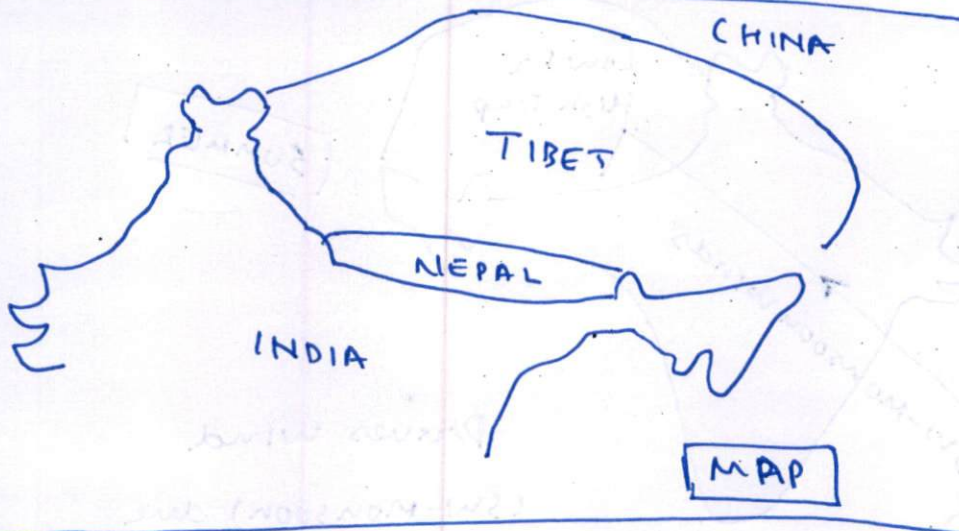 CHINA
TIBET
NEPAL
INDIA
MAP